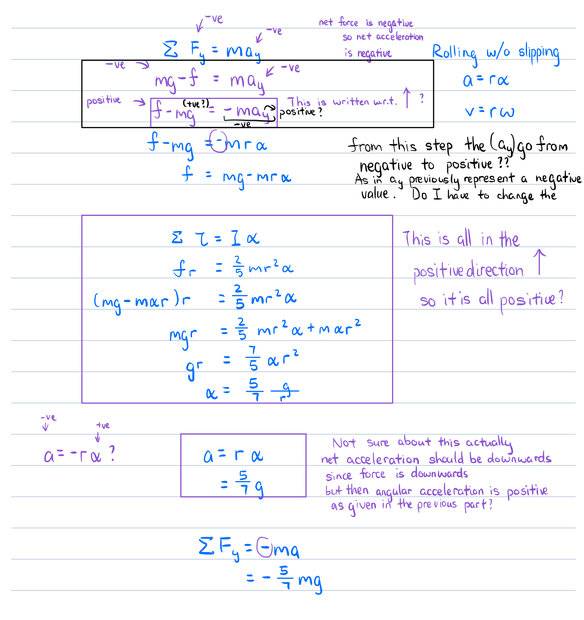 -ve
net force is negative
so net acceleration
is negative
-ve
Σ Fy = may
Rolling w/o slipping
-ve
mg-f = may
-ve
a = rα
positive
(+ve?)
f-mg = -may
positive?
-ve
This is written w.r.t. ↑ ?
v = rω
f-mg = -mrα
f = mg-mrα
from this step the (ay) go from
negative to positive ??
As in ay previously represent a negative
value. Do I have to change the
Σ τ = Iα
fr = 2/5 mr²α
(mg-mαr)r = 2/5 mr²α
mgr = 2/5 mr²α + mαr²
gr = 7/5 αr²
α = 5/7 g/r
This is all in the
positive direction ↑
so it is all positive?
-ve
+ve
a = -rα ?
a = rα
= 5/7 g
Not sure about this actually
net acceleration should be downwards
since force is downwards
but then angular acceleration is positive
as given in the previous part?
ΣFy = -ma
= - 5/7 mg